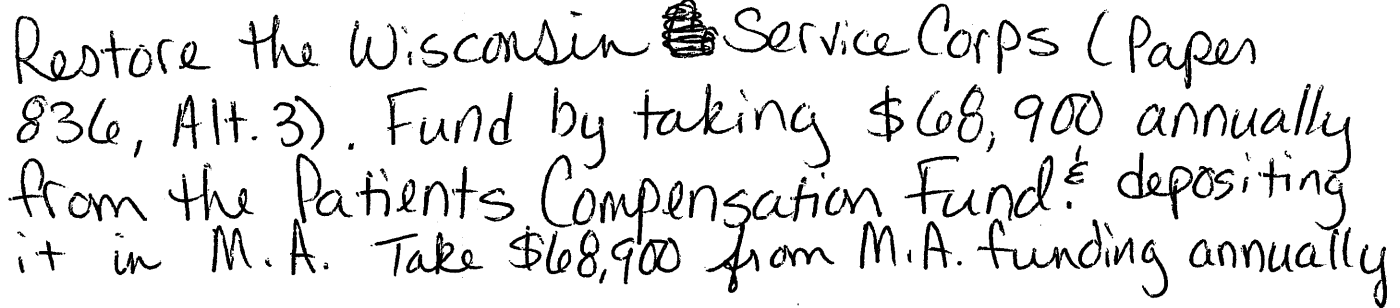 Restore the Wisconsin Service Corps (Paper
836, Alt. 3). Fund by taking $68,900 annually
from the Patients Compensation Fund. & depositing
it in M.A. Take $68,900 from M.A. funding annually